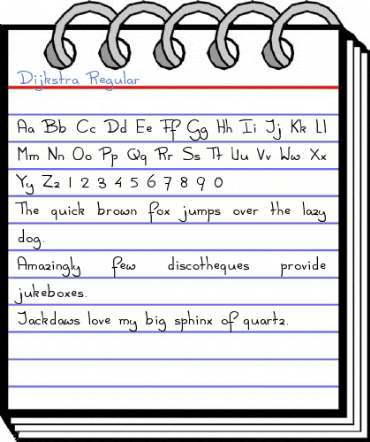 Dijkstra Regular
Aa Bb Cc Dd Ee Ff Gg Hh Ii Jj Kk Ll
Mm Nn Oo Pp Qq Rr Ss Tt Uu Vv Ww Xx
Yy Zz 1 2 3 4 5 6 7 8 9 0
The quick brown fox jumps over the lazy
dog.
Amazingly few discotheques provide
jukeboxes.
Jackdaws love my big sphinx of quartz.